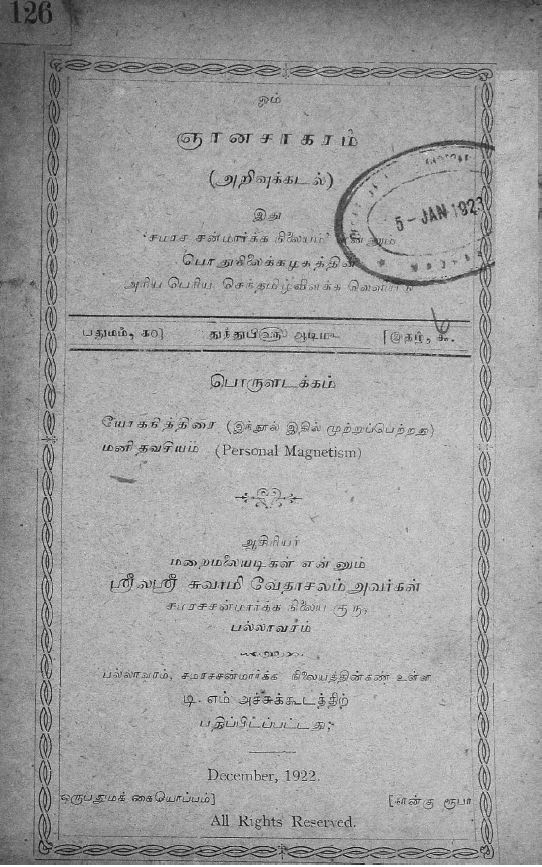 126
ஓம்
ஞானசாகரம்
(அறிவுக்கடல்)
இது
'சமரச சன்மார்க்க நிலையம்' என்னும்
பொதுநிலைக்கழகத்தின்
அரிய பெரிய செந்தமிழ்விளக்க
5-JAN 1923
பதுமம், ௧௦] துந்துபி௵ ஆடி௴ [இதழ், ௬.
பொருளடக்கம்
யோகநித்திரை (இந்நூல் இதில் முற்றுப்பெற்றது)
மனிதவசியம் (Personal Magnetism)
ஆசிரியர்
மறைமலையடிகள் என்னும்
ஸ்ரீலஸ்ரீ சுவாமி வேதாசலம் அவர்கள்
சமரசசன்மார்க்க நிலைய குரு,
பல்லாவரம்
பல்லாவரம், சமரசசன்மார்க்க நிலையத்தின்கண் உள்ள
டி. எம் அச்சுக்கூடத்திற்
பதிப்பிடப்பட்டது;
December, 1922.
ஒருபதுமக் கையொப்பம்] [நான்கு ரூபா
All Rights Reserved.